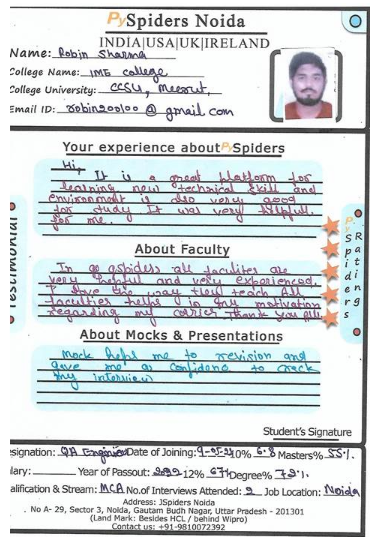 PySpiders Noida
INDIA|USA|UK|IRELAND
Name: Robin Sharma
College Name: IME College
College University: CCSU, Meerut,
Email ID: robin200100@gmail.com
Your experience about PySpiders
Hi,
It is a great platform for
learning new technical skill and
environment is also very good
for study It was very helpful
for me.
About Faculty
In qspiders all faculites are
very helpful and very experienced.
I love the way they teach All
faculties helps in my motivation
regarding my carrier Thank you All.
About Mocks & Presentations
Mock helps me to revision and
gave me a confidence to crack
my interview
Testimonial
PySpiders
Rating
Student's Signature
esignation: QA Engineer Date of Joining: 10% 6.8 Masters% 55%.
lary: Year of Passout: 12% 67% Degree% 72%.
alification & Stream: MCA No.of Interviews Attended: 2 Job Location: Noida
Address: JSpiders Noida
. No A- 29, Sector 3, Noida, Gautam Budh Nagar, Uttar Pradesh - 201301
(Land Mark: Besides HCL / behind Wipro)
Contact us: +91-9810072392